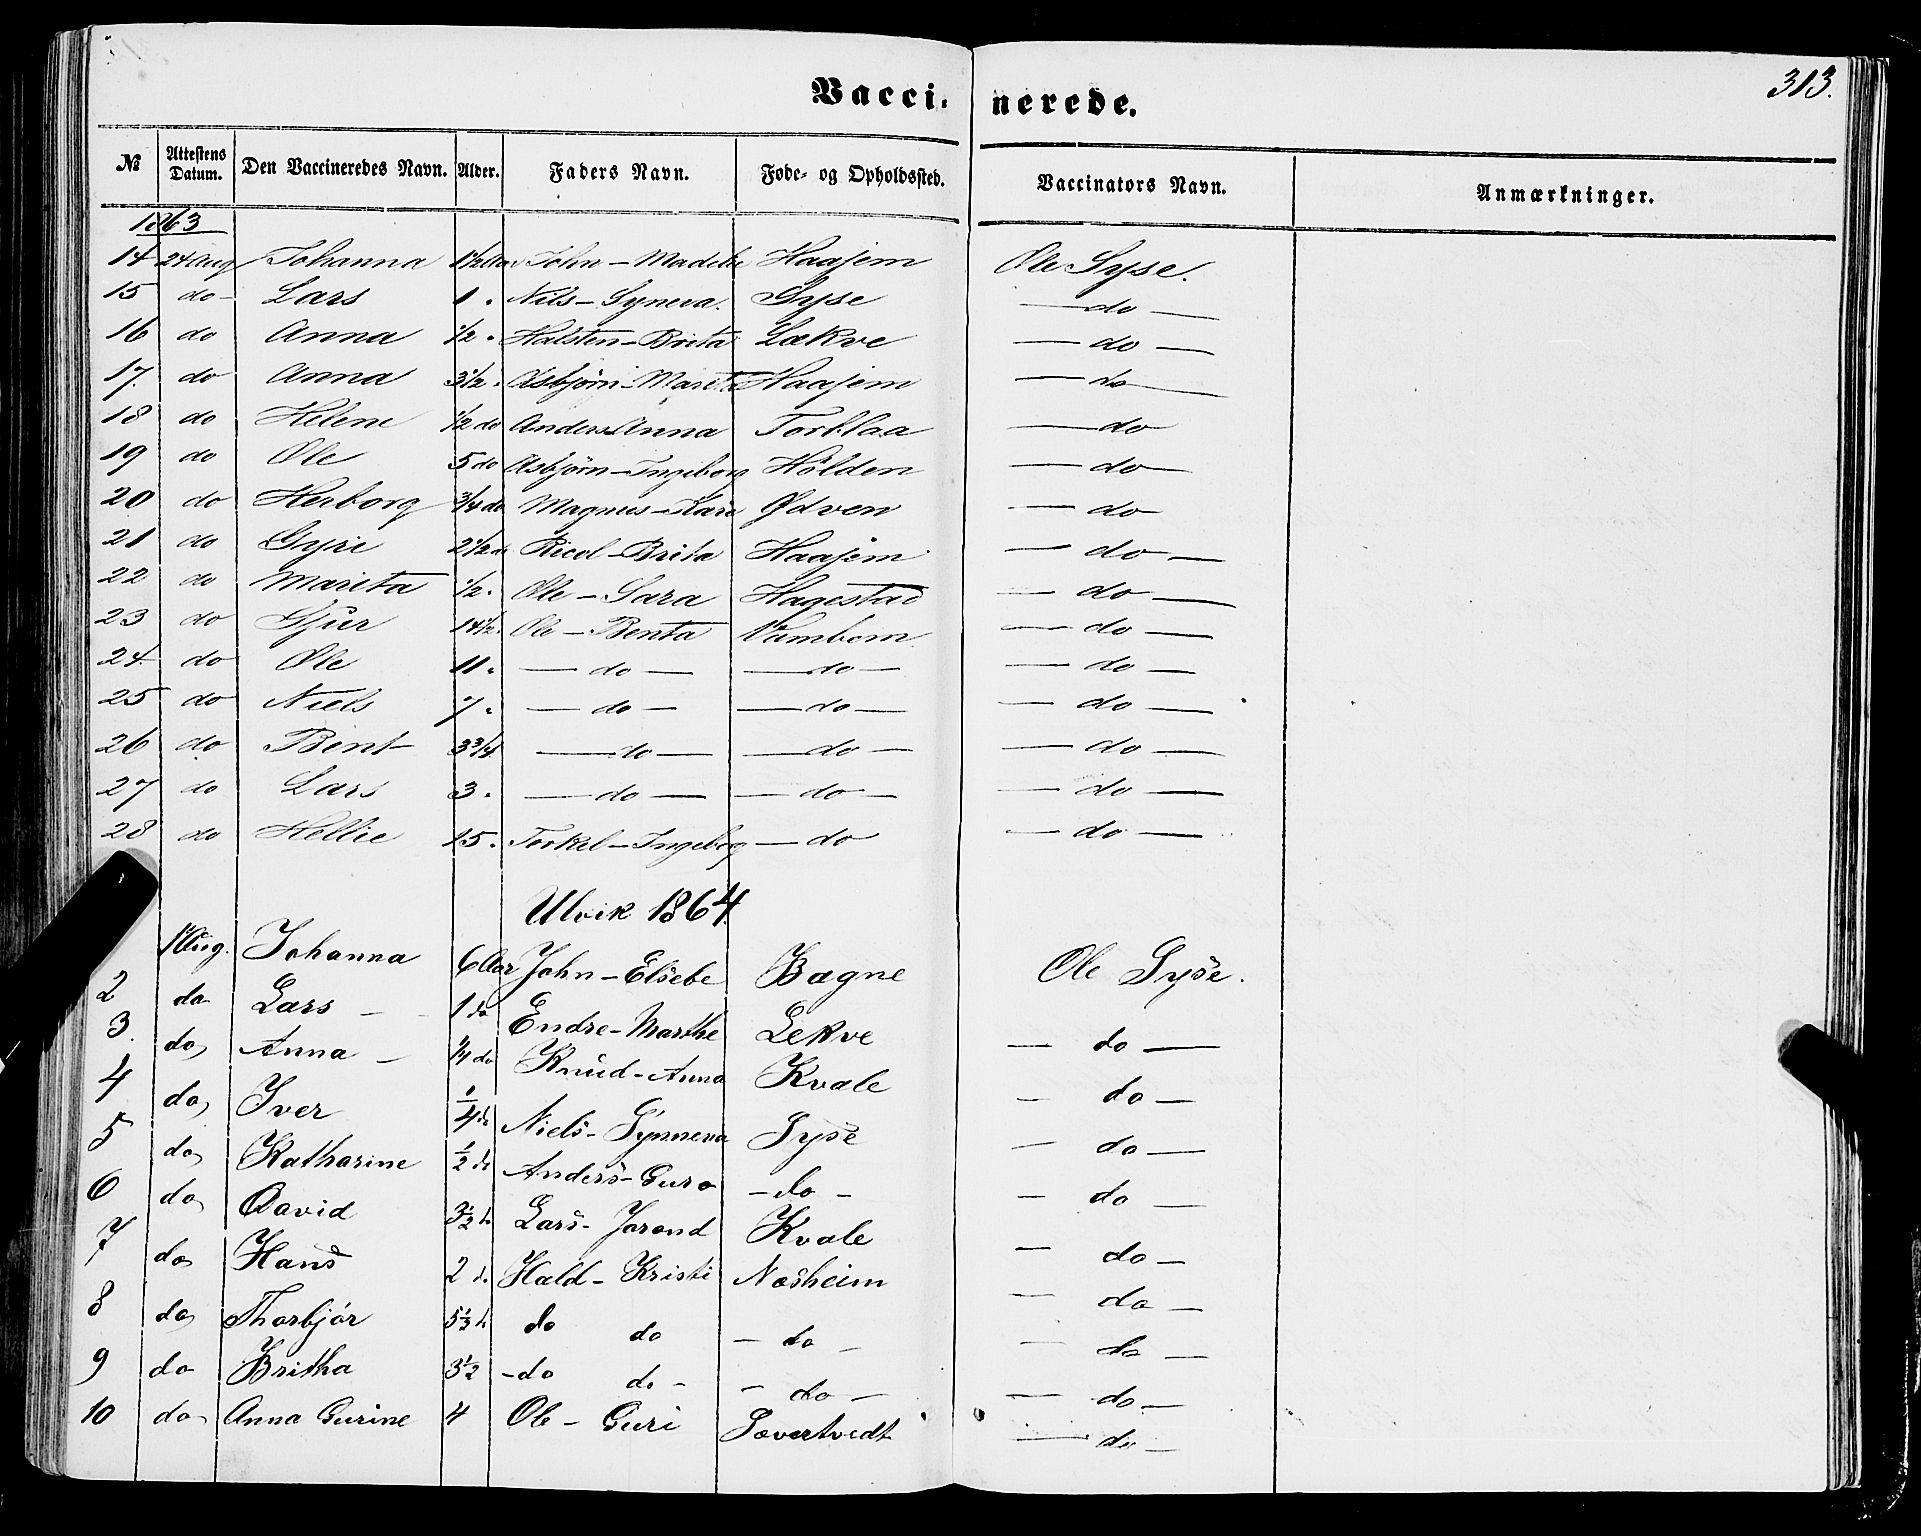 313.
Vaccinerede.
№ Attestens Datum. Den Vaccineredes Navn. Alder. Faders Navn. Føde- og Opholdssted. Vaccinators Navn. Anmærkninger.
1863
14 24 Aug Johanna 1½ Aar John - Haajem Ole Syse.
15 do - Lars 1 " Nils - Syneva. Syse - do -
16 do Anna ½ " Halsten - Brita Lækve - do -
17. do Anna 3½ " Asbjørn - Marita Haajem - do -
18 do Helene ½ do Anders Anna Torblaa - do
19 do Ole 5 do Asbjørn - Ingeborg Hølden - do -
20 do Herborg ¾ do Magnus - Kari Ødven - do
21 do Gyri 2½ Brita Haajem - do -
22 do Marita ½ " Ole - Sara Hagestad - do -
23 do Gjur 14½ " Ole - Benta Vambem - do -
24 do Ole 11 " - do - - do - - do -
25 do Niels 7 " - do - - do - - do -
26 do Bent 3¾ - do - - do - - do -
27 do Lars 3 " - do - - do - - do -
28 do Hellie 15 " Torkel - Ingebog - do - do -
Ulvik 1864.
1 Aug. Johanna 6 Aar John - Elsebe Bagne Ole Syse.
2 do Lars - 1 do Endre - Marthe Lekve - do -
3. do Anna - ¼ do Knud - Anna Kvale - do -
4 do Iver ¼ do Niels - Synneva Syse - do -
5 do Katharine ½ do Anders - Guro - do - - do -
6 do David 3½ d Lars - Jorand Kvale - do -
7 do Hans 2 d. Hald - Kristi Næsheim - do -
8 do Thorbjør 5⅓ d do do - do - - do -
9 do Britha 3½ - do do - - do - - do -
10 do Anna Gurine 4 Ole - Guri Søvertvedt - do -